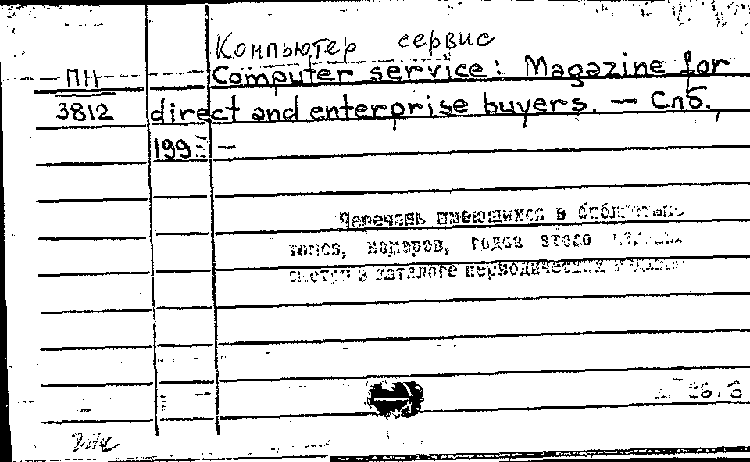 Компьютер сервис
ПП Computer service: Magazine for
3812 direct and enterprise buyers. — Спб.,
199 —
Перечень имеющихся в
томов, номеров, годов этого
в каталоге периодических